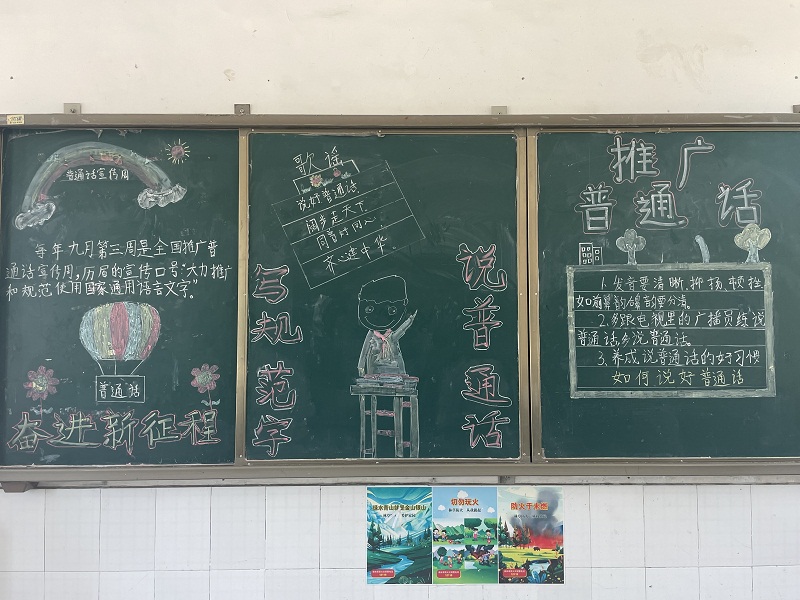 普通话宣传周
每年九月第三周是全国推广普
通话宣传周,历届的宣传口号:"大力推广
和规范使用国家通用语言文字"。
普通话
奋进新征程
歌谣
说好普通话
阔步走天下
同音时同人
齐心建中华。
写规范字
说普通话
推广
普通话
1.发音要清晰,抑扬顿挫
2.多跟电视里的广播员练说
普通话,多说普通话。
3.养成说普通话的好习惯
如何说好普通话
绿水青山就是金山银山
切勿玩火
防火于未燃